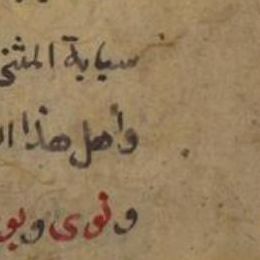 سبابة المثنى
وأهل هذا ا
ونوى وبو